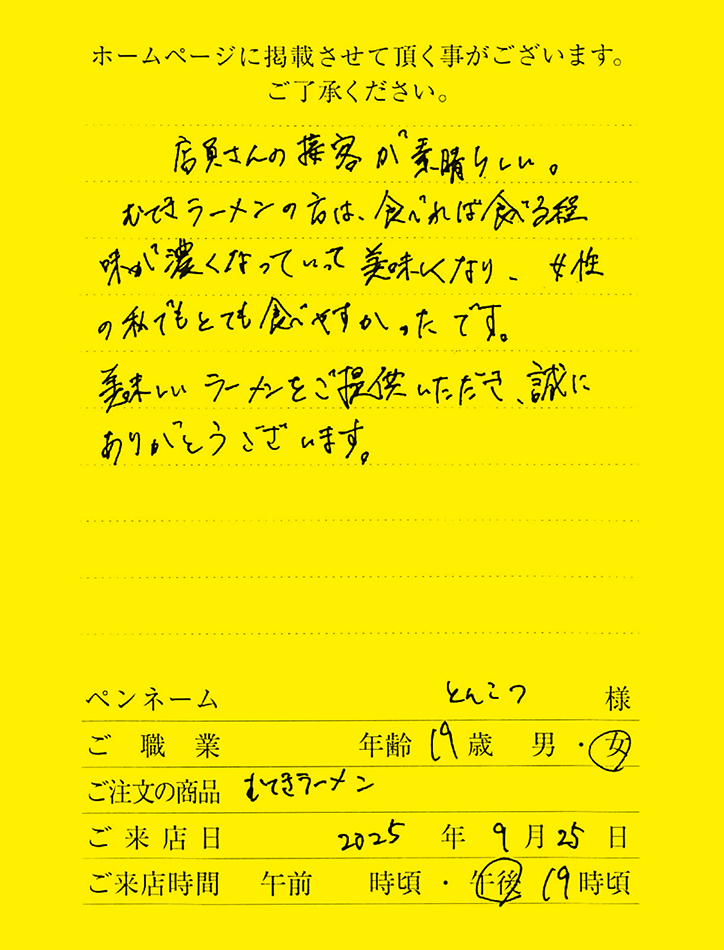 ホームページに掲載させて頂く事がございます。
ご了承ください。
店員さんの接客が素晴らしい。
むてきラーメンの方は、食べれば食べる程
味が濃くなっていって美味しくなり、女性
の私でもとても食べやすかったです。
美味しいラーメンをご提供いただき、誠に
ありがとうございます。
ペンネーム とんこつ 様
ご職業 年齢 19 歳 男・女
ご注文の商品 むてきラーメン
ご来店日 2025 年 9 月 25 日
ご来店時間 午前 時頃・午後 19 時頃